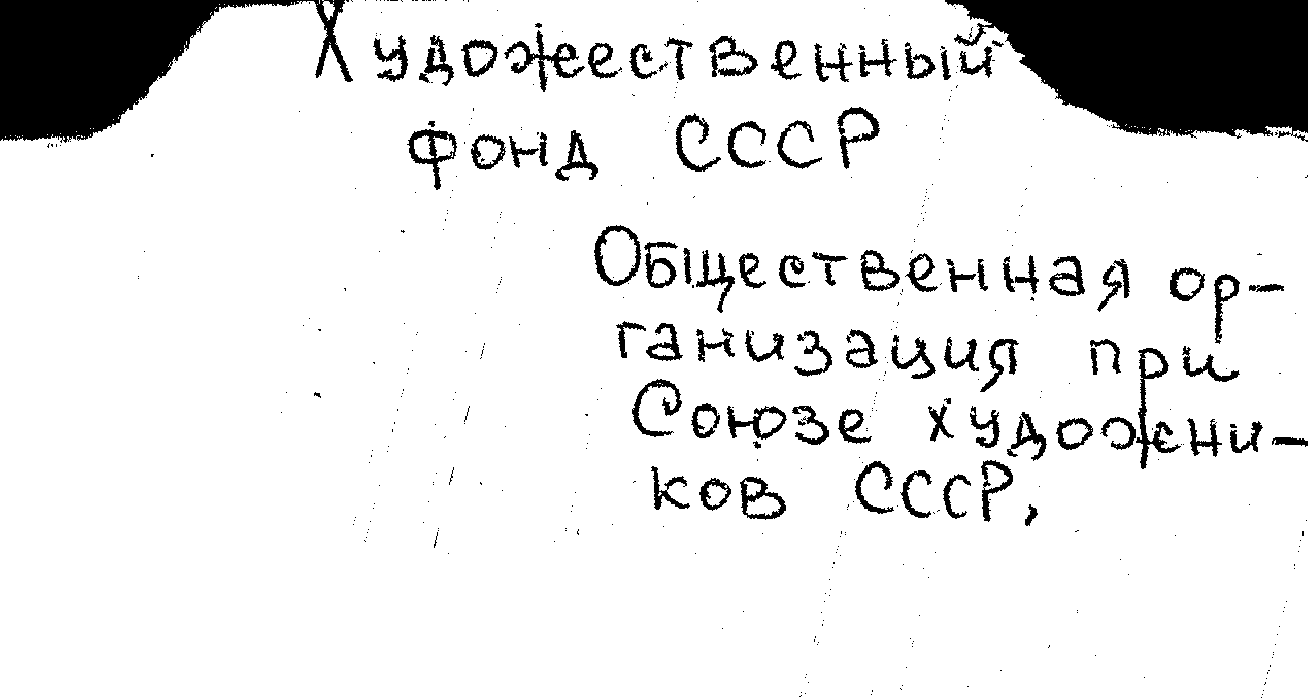 Художественный
фонд СССР
Общественная ор-
ганизация при
Союзе художни-
ков СССР,